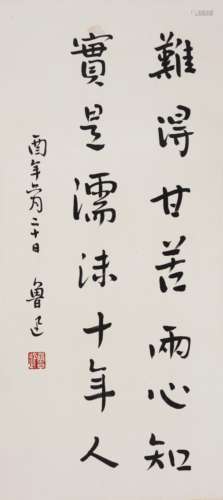 難得甘苦兩心知
實是濡沫十年人
酉年六月二十日
魯迅